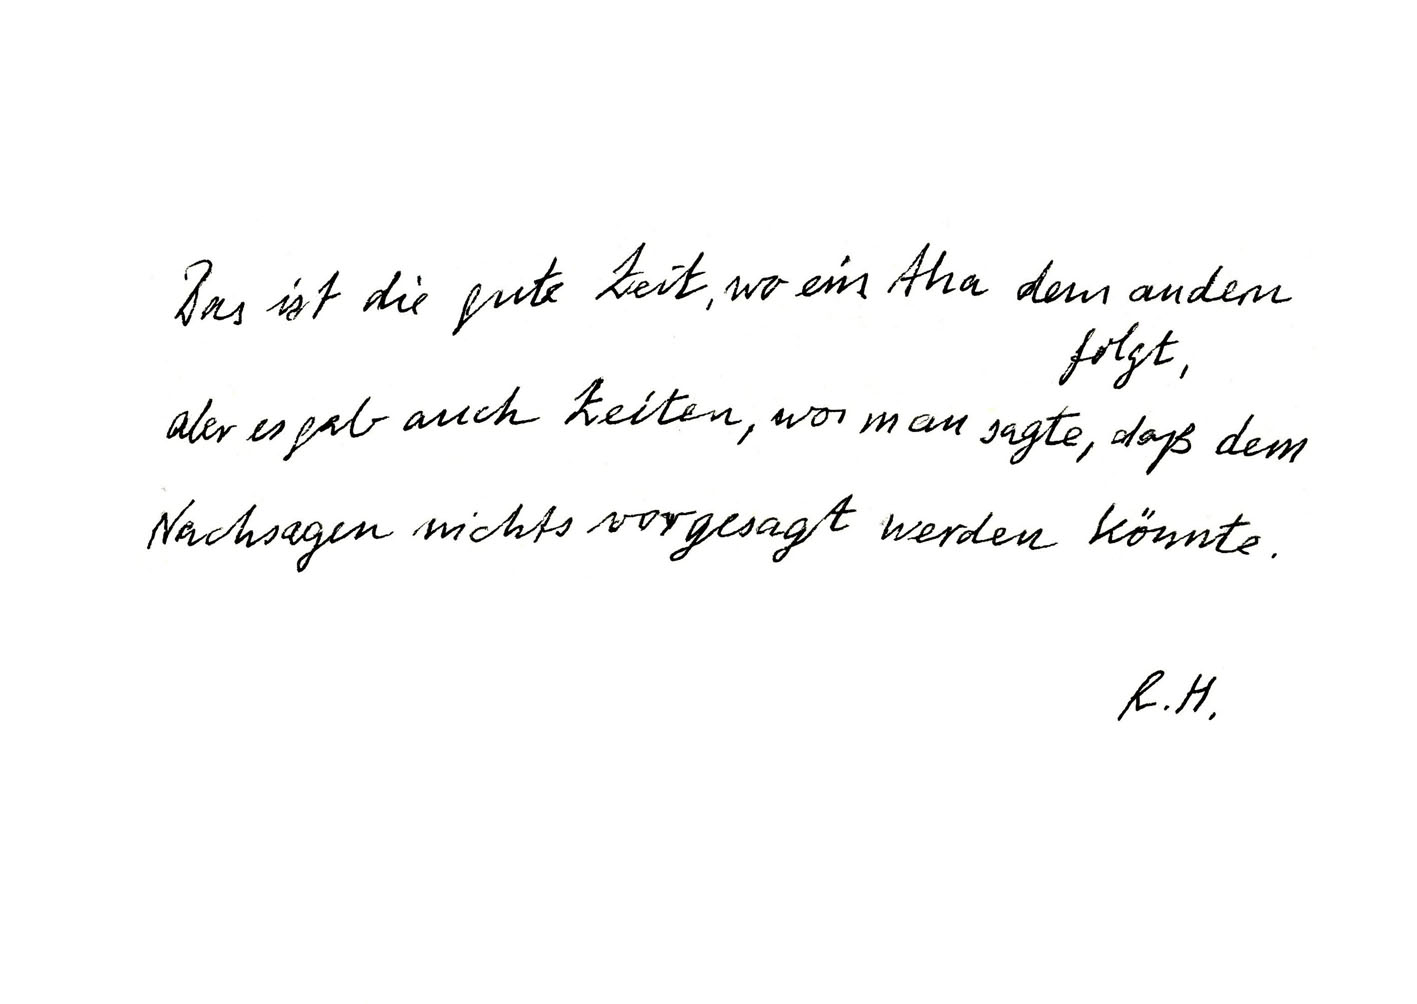 Das ist die gute Zeit, wo ein Aha dem andern
folgt,
aber es gab auch Zeiten, wo man sagte, daß dem
Nachsagen nichts vorgesagt werden könnte.
R.H.